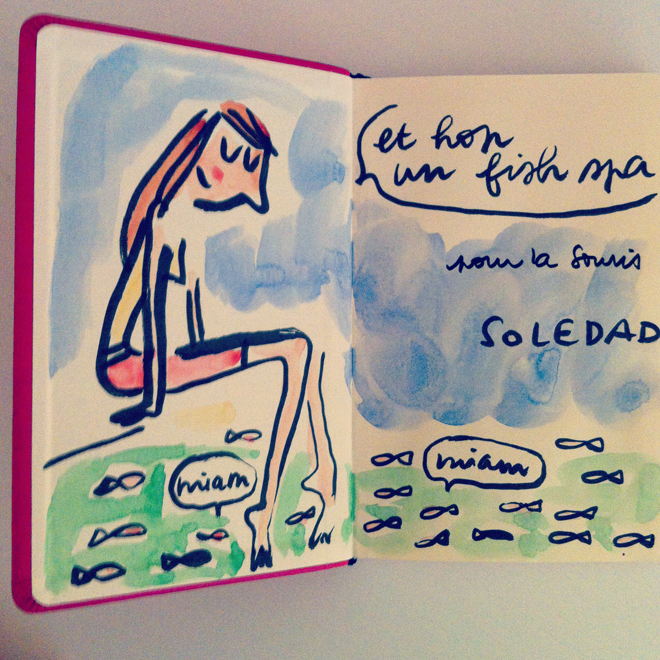 et hop
un fish spa
pour la Souris
SOLEDAD
miam
miam